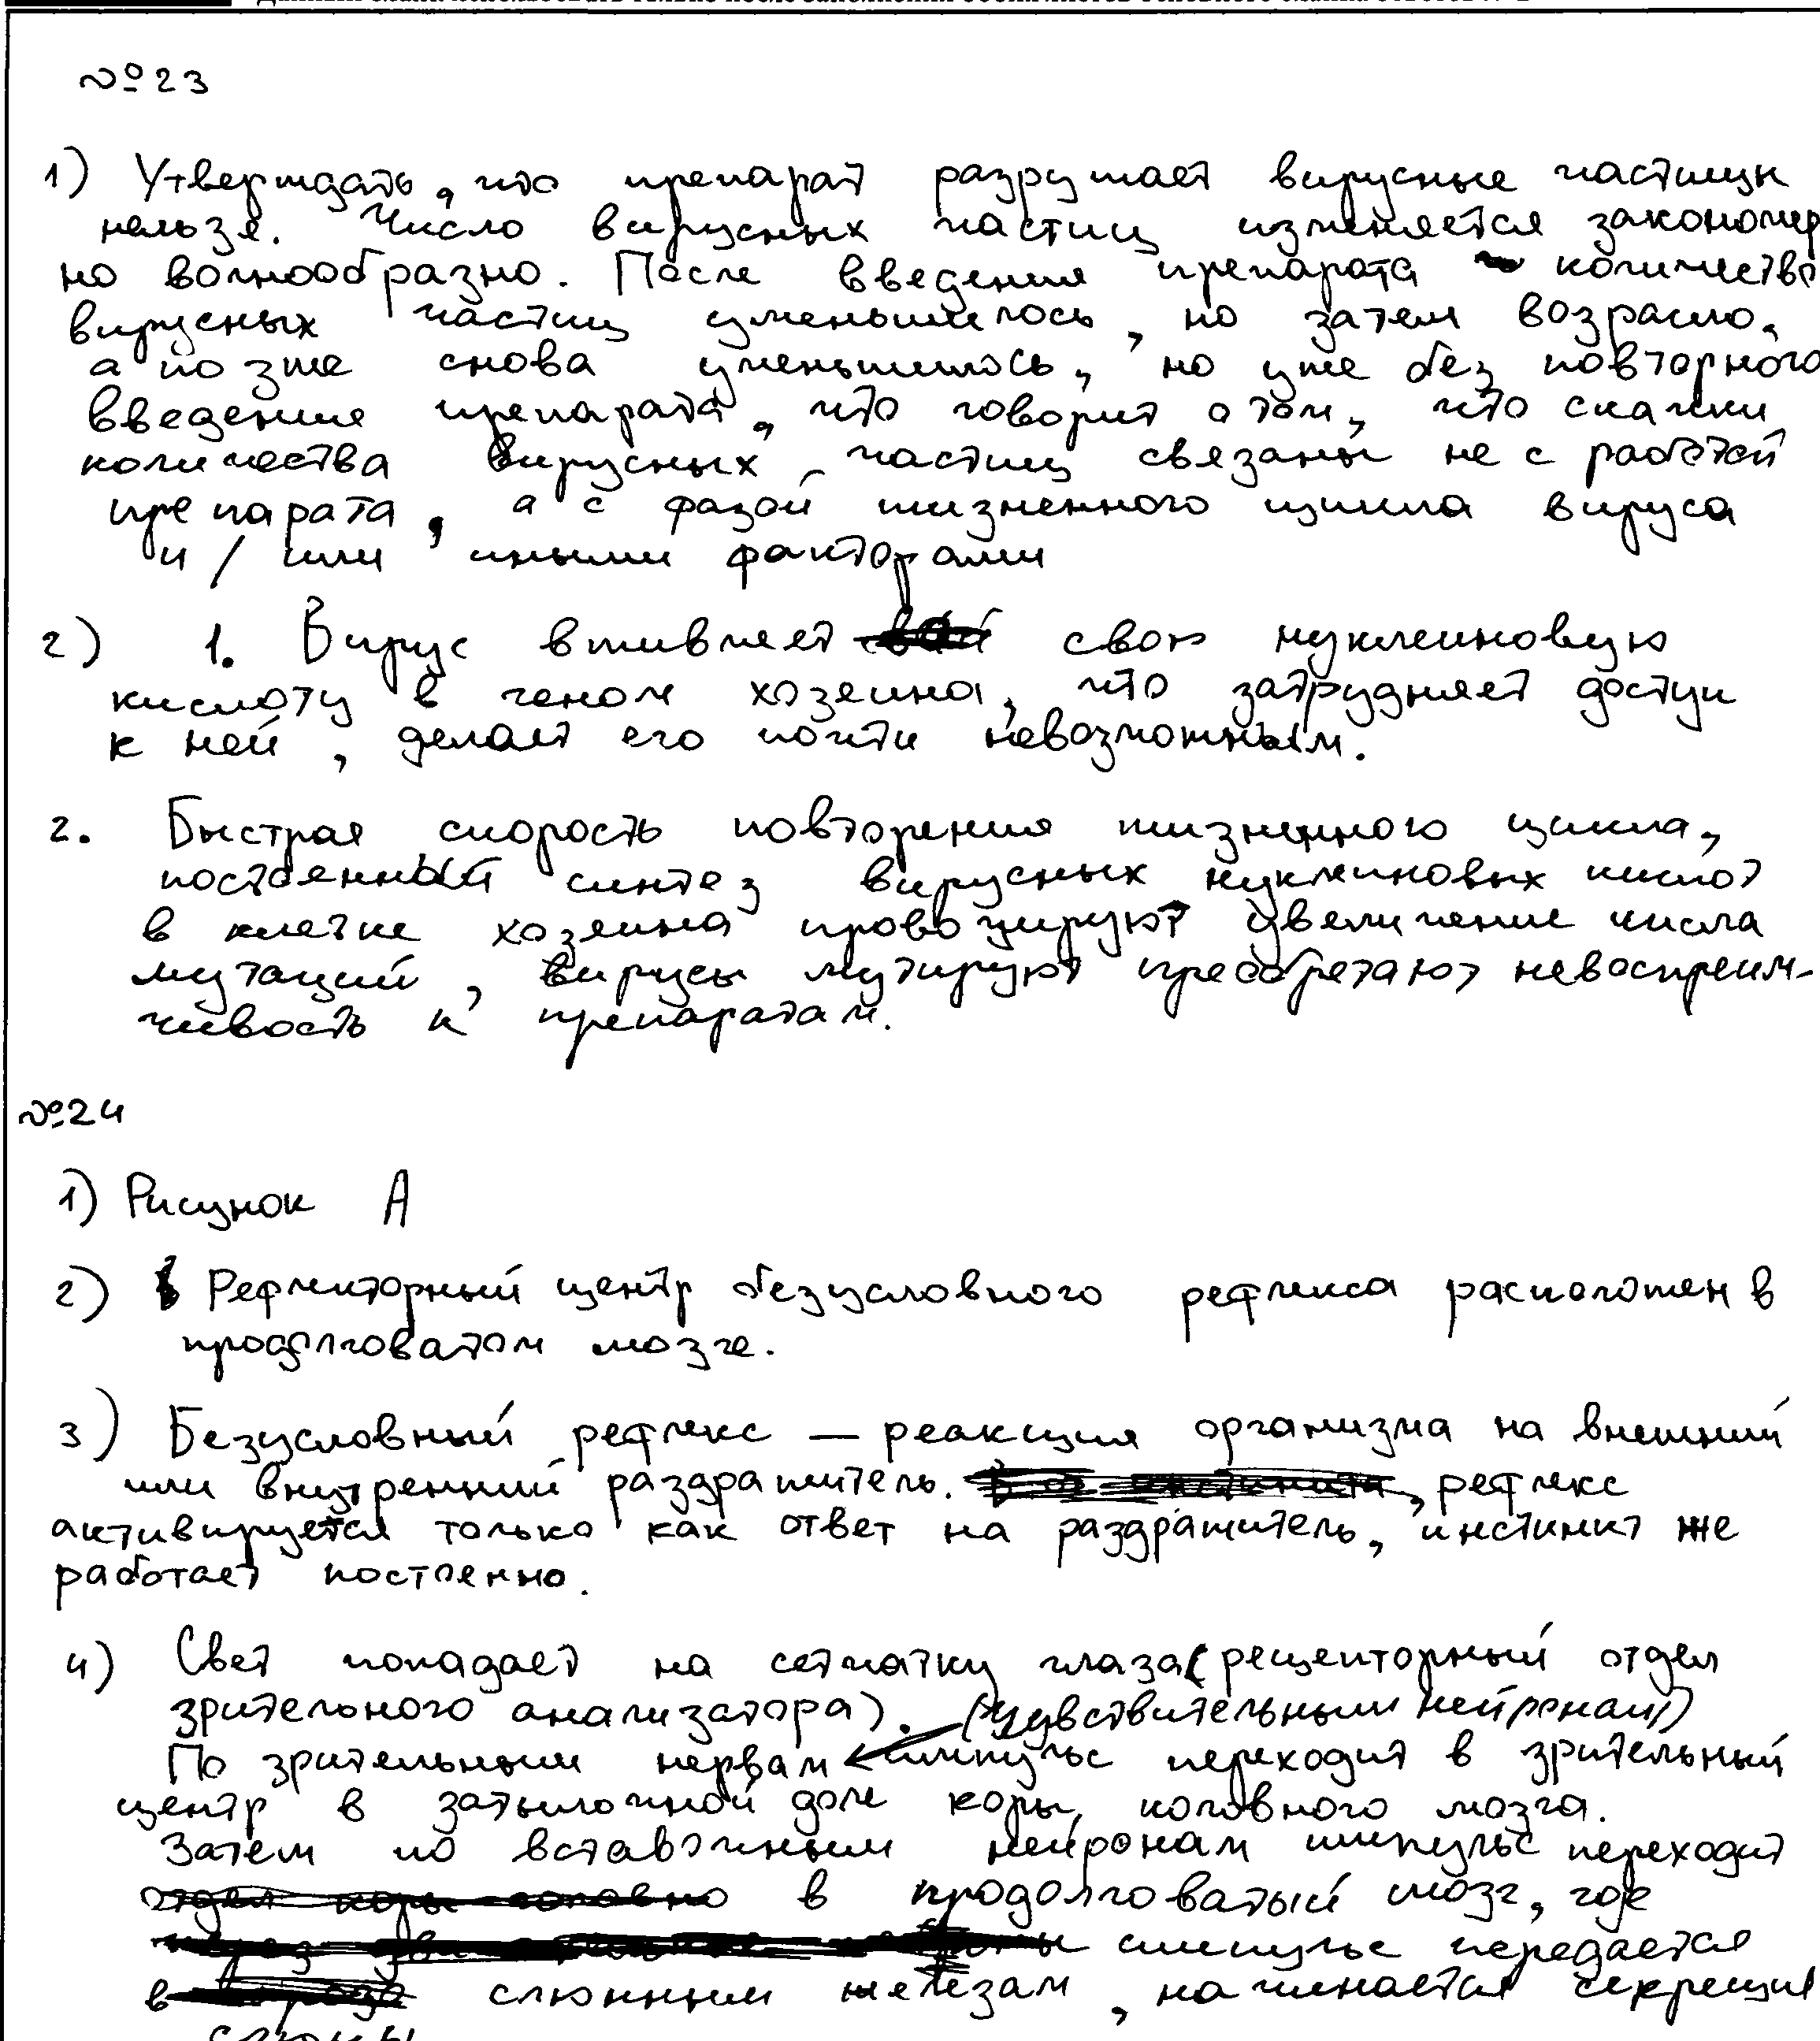 №23
1) Утверждать, что препарат разрушает вирусные частицы
нельзя. Число вирусных частиц изменяется закономер
но волнообразно. После введения препарата количество
вирусных частиц уменьшилось, но затем возрасло,
а позже снова уменьшилось, но уже без повторного
введение препарата, что говорит о том, что скачки
количества вирусных частиц связаны не с работой
препарата, а с фазой жизненного цикла вируса
и / или иными факторами
2) 1. Вирус вживляет свою нуклеиновую
кислоту в геном хозяина, что затрудняет доступ
к ней, делает его почти невозможным.
2. Быстрая скорость повторения жизненного цикла,
постоянный синтез вирусных нуклеиновых кислот
в клетке хозяина провоцируют увеличение числа
мутаций, вирусы мутируют преобретают невосприим-
чивость к препаратам.
№24
1) Рисунок А
2) Рефлекторный центр безусловного рефлекса расположен в
продолговатом мозге.
3) Безусловный рефлекс — реакция организма на внешний
или внутренний раздражитель. , рефлекс
активируется только как ответ на раздражитель, инстинкт же
работает постоянно.
4) Свет попадает на сетчатку глаза (рецепторный отдел
зрительного анализатора). (чувствительными нейронам)
По зрительным нервам импульс переходит в зрительный
центр в затылочной доле коры головного мозга.
Затем по вставочным нейронам импульс переходит
в продолговатый мозг, где
импульс передается
в слюнным железам, начинается секреция
слюны